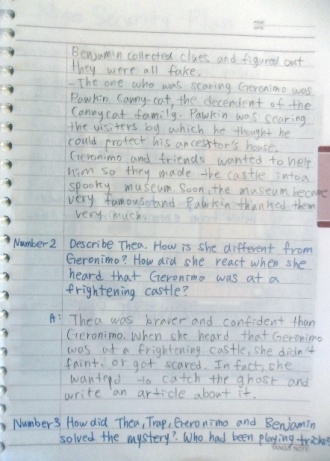 Benjamin collected clues and figured out
they were all fake.
-The one who was scaring Geronimo was
Pawkin Canny cat, the decendent of the
Cannycat family. Pawkin was scaring
the visiters by which he thought he
could protect his ancestor's house.
Geronimo and friends wanted to help
him so they made the castle into a
spooky museum. Soon, the museum became
very famous and Pawkin thanked them
very much.
Number 2 Describe Thea. How is she different from
Geronimo? How did she react when she
heard that Geronimo was at a
frightening castle?
A: Thea was braver and confident than
Geronimo. When she heard that Geronimo
was at a frightening castle, she didn't
faint. or got scared. In fact, she
wanted to catch the ghost and
write an article about it.
Number 3 How did Thea, Trap, Geronimo and Benjamin
solved the mystery? Who had been playing tricks